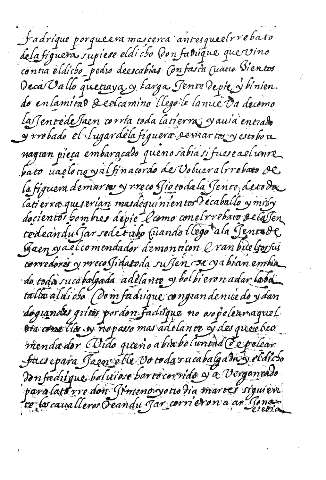 fadrique porque era mas cerca antes que el rrebato
de la figuera supiese el dicho don fadrique que vino
contra el dicho pedro de escabias con fasta cuatro cientos
de cavallo que traya y harga Jente de pie y binien
do en la mitad del camino llego le la nueva de como
la Jente de Jaen corria toda la tierra y avia entrado
y rrobado el lugar de la figuera de martos y estobo u
na gran pieça embaraçado que no sabia si fuese a el un rre
bato v a el otro y al fin acordo de volver al rrebato de
la figuera de martos y rrecogio toda la Jente de
la tierra que serian mas de quinientos de cavallo y mill y
docientos hombres de pie como con el rrebato de la Jen
te de andujar se detubo cuando llego a la Jente de
Jaen y a el comendador de montiçon eran buelto sus
corredores y rrecogida toda su Jente y abian embia
do toda su cabalgada adelante y bolbieron a dar
batalla al dicho Don fadrique con gran denuedo y dan
do grandes gritos por don fadrique no oso pelear aquel
dia con ellos y no paso mas adelante y des que el co
mendador vido que no abia boluntad de pelear
fuese para Jaen y llevo toda su cabalgada y el dicho
don fadrique bolviose harto corrido y a vergonçado
para la torre don Ximeno y otro dia martes siguien
te los cavalleros de andujar corrieron a arjona